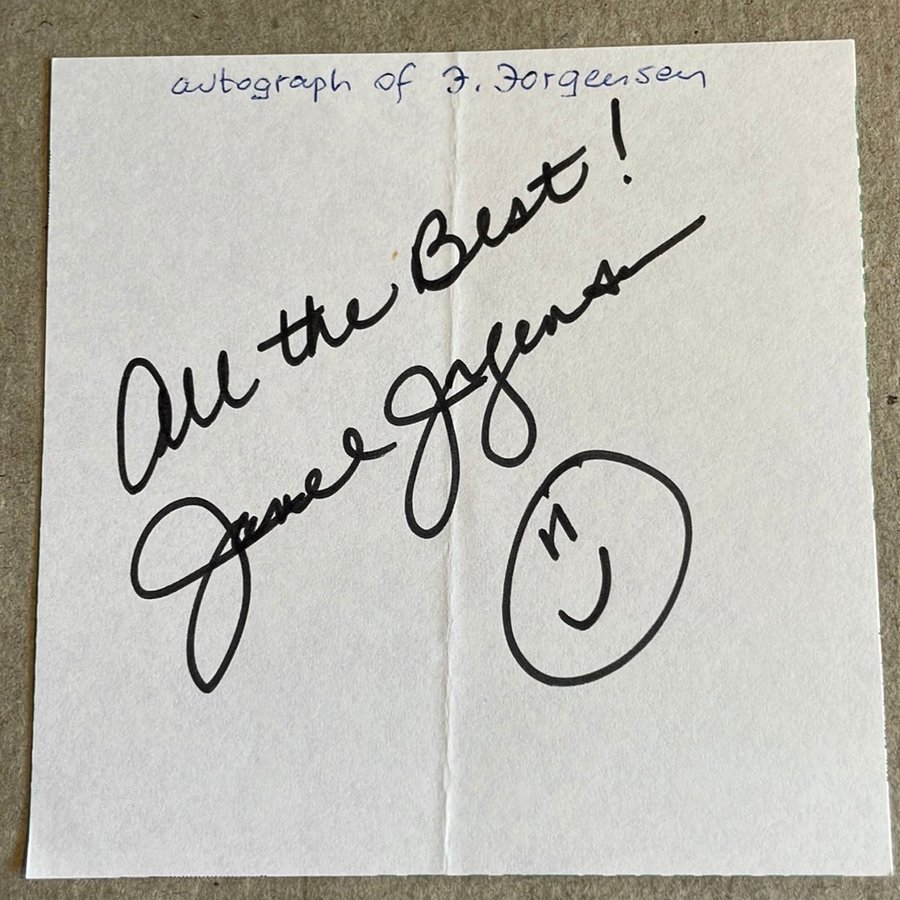 autograph of J. Jorgensen
All the Best!
Janel Jorgensen